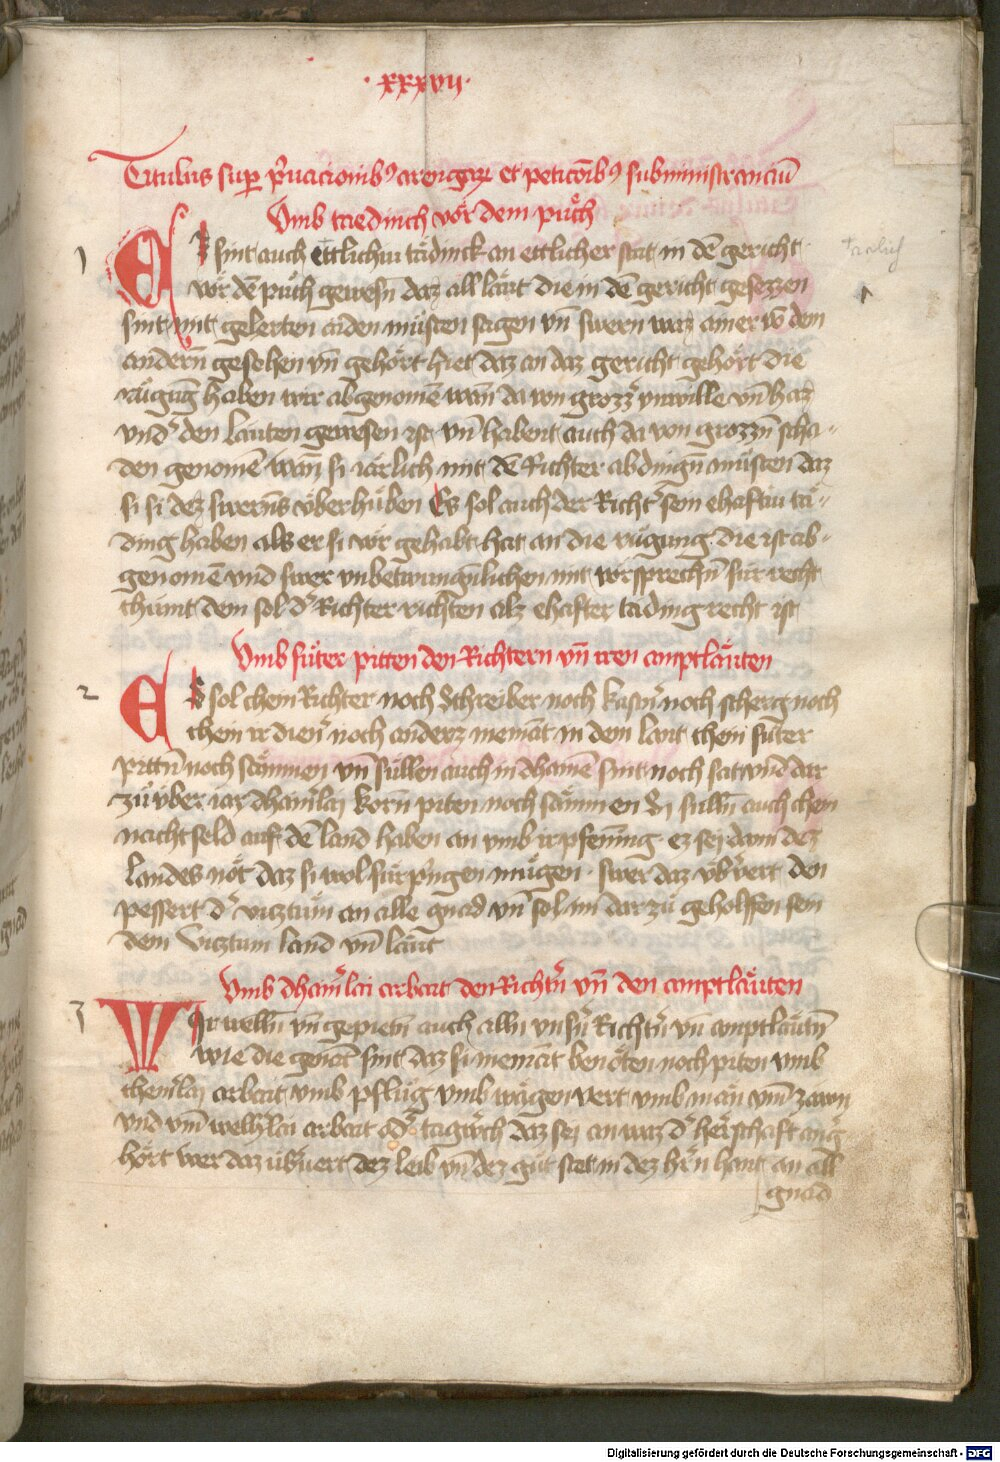 · xxxvii ·
Titulus sup p̄uacionibꝰ arengarꝝ et peticōibꝰ subministranciū
Umb taedinch vor dem půch
1 ES sint auch ettlichiu tädinck an ettlicher stat in dē gericht
vor dē půch gewesn̄ daz all läut die in dē gericht gesezzen
sint mit gelerten aiden můsten sagen vn̄ swern waz ainer vō dem
andern̄ gesehen vn̄ gehört hiet daz an daz gericht gehört die
růgūg haben wir abgenomē wann da von grozz̄ vnwille vn̄ haz
vnd̾ den lauten gewesen ist vn̄ habent auch da von grozzn̄ scha-
den genomē wan̄ si iärlich mit dē Richter abdingn̄ můsten daz
si si dez swerns v̈berhůben Es sol auch der Richt̾ sein ehaftiu tä-
ding haben als er si vor gehabt hat an die růgung die ist ab-
genomē vnd swer vnbetwungēlichen mit vorsprechn̄ für recht
chumt dem sol d̾ Richter richten alz ehafter täding recht ist
Umb fůter pitten den Richtern vn̄ iren amptläuten
2 ES sol chein Richter noch Schreiber noch kastn̄ noch scherg noch
chein ir dien̾ noch anderz niemāt in dem lant chein fůter
pittn̄ noch sämmen vn̄ süllen auch in dhainē snit noch sat vnd dar
zů v̈ber iar dhain̾lai korn piten noch sämmen Si sulln̄ auch chein
nachtseld auf dē land haben an vmb ir pfenīng ez sei dann dez
landes nöt daz si wol für p̾ngen můgen · swer daz v̈b̾vert den
pessert d̾ viztum an alle gnad vn̄ sol im dar zů geholffen sein
dem Viztum land vn̄ läut
Umb dhain̾lai arbait den Richtn̄ vn̄ den amptläuten
3 WIr welln̄ vn̄ gepietn̄ auch alln̄ vnsn̄ Richtn̄ vn̄ amptläutn̄
wie die genāt sint daz si niemāt benöten noch piten vmb
chein̾lai arbait vmb pflůg vmb wägen vert vmb män vm̄ zäwn
vnd vm̄ welh̾lai arbait od̾ tagw̾ch daz sei an waz d̾ herschaft ang̾
hört wer daz üb̾uert dez leib vn̄ dez gůt stet in dez h̾rn hant an all
gnad